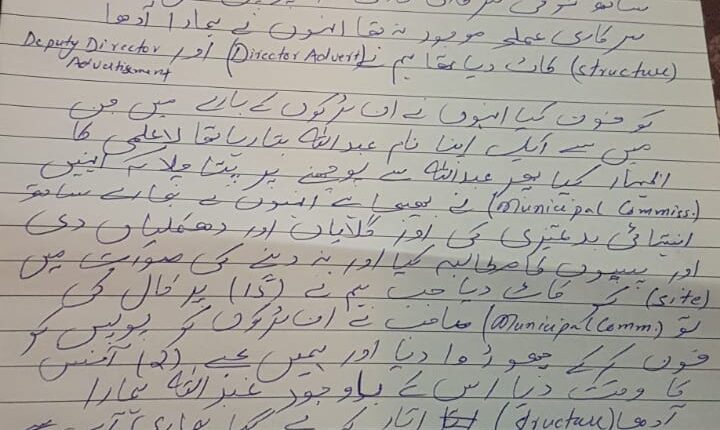 سرکاری عملہ موجود نہ تھا انہوں نے ہمارا آدھا
(structure) کاٹ دیا تھا ہم نے (Director Advert) اور Deputy Director Advertisement
کو فون کیا انہوں نے ان لڑکوں کے بارے میں جن
میں سے ایک اپنا نام عبداللہ بتا رہا تھا لاعلمی کا
اظہار کیا پھر عبداللہ سے پوچھنے پر پتا چلا کہ انہیں
(Municipal Commiss.) نے بھیجا ہے انہوں نے ہمارے ساتھ
انتہائی بدتمیزی کی اور گالیاں اور دھمکیاں دی
اور پیسوں کا مطالبہ کیا اور نہ دینے کی صورت میں
(site) کو کاٹ دیا جب ہم نے (15) پر کال کی
تو (Municipal Comm.) صاحب نے ان لڑکوں کو پولیس کو
فون کر کے چھوڑوا دیا اور ہمیں (2) آفس
کا وقت دیا اس کے باوجود عبداللہ ہمارا
آدھا (structure) اتار کے لے گیا